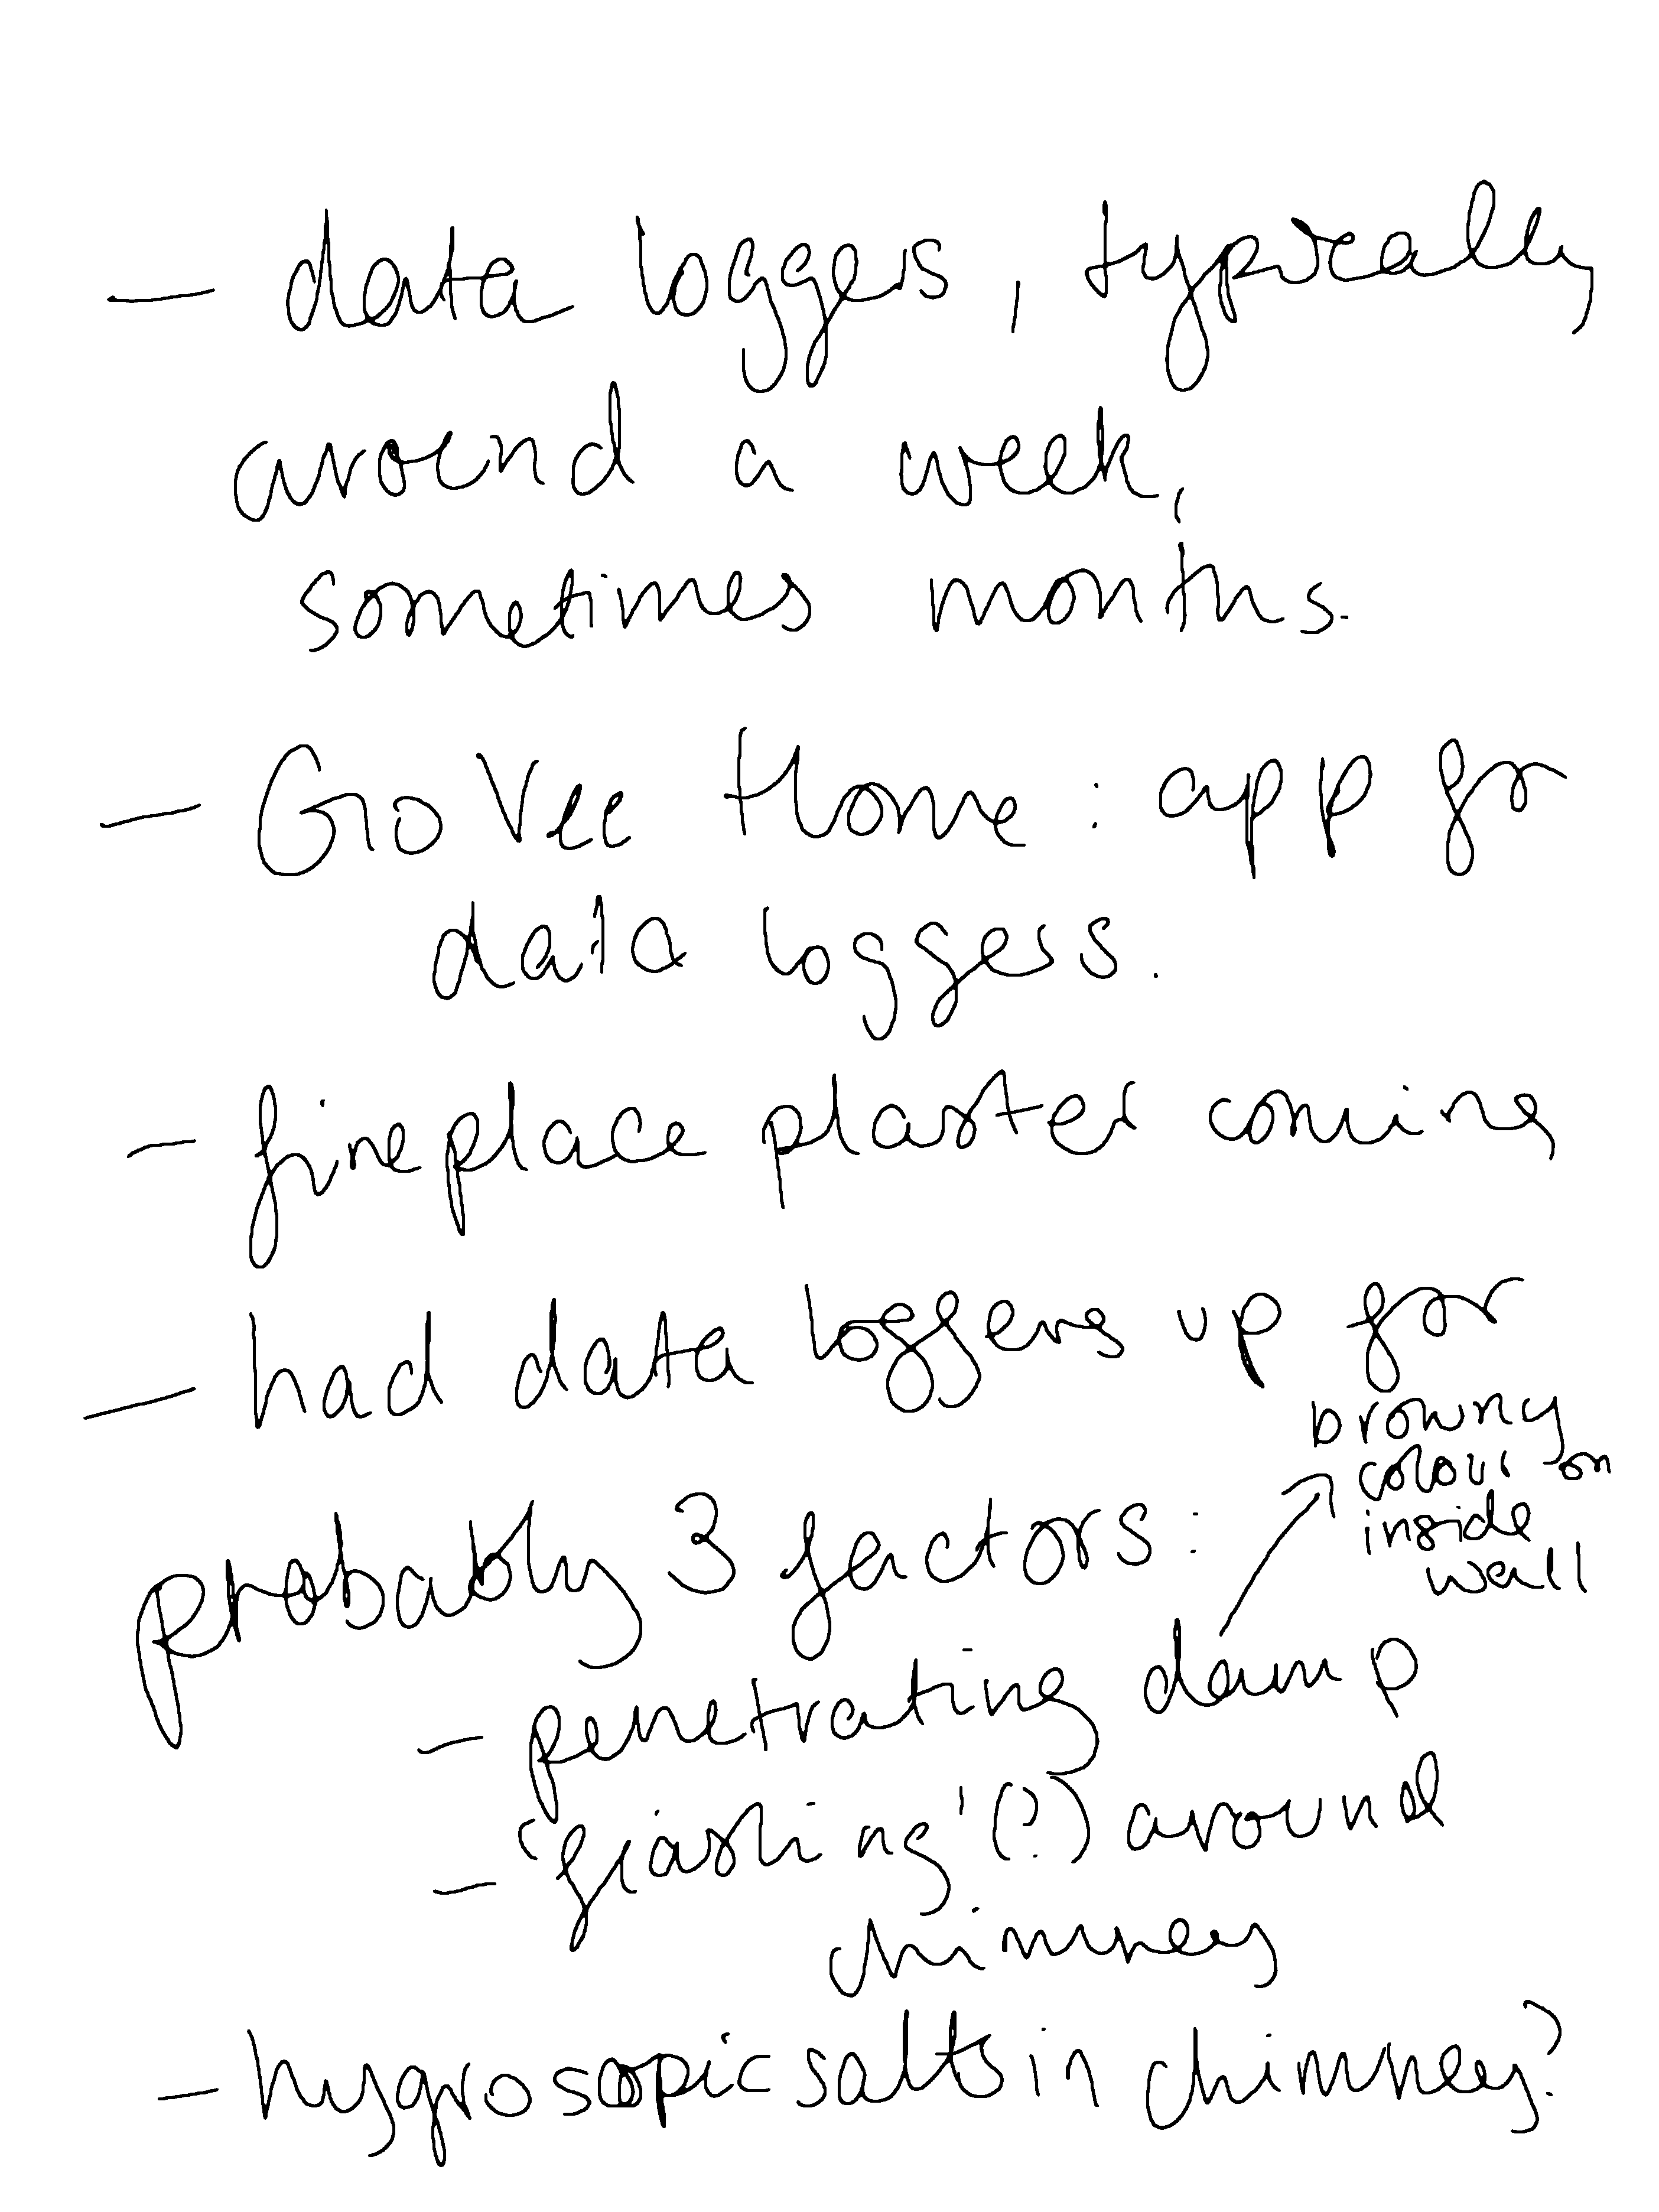 - data loggers, typically
around a week,
sometimes months.
- GoVee Home: app for
data loggers.
- fireplace plaster coming
- had data loggers up for
browny
colour on
inside
wall
probably 3 factors:
- penetrating damp
- 'flashing' (?) around
chimney
- hygrosopic salts in chimney?